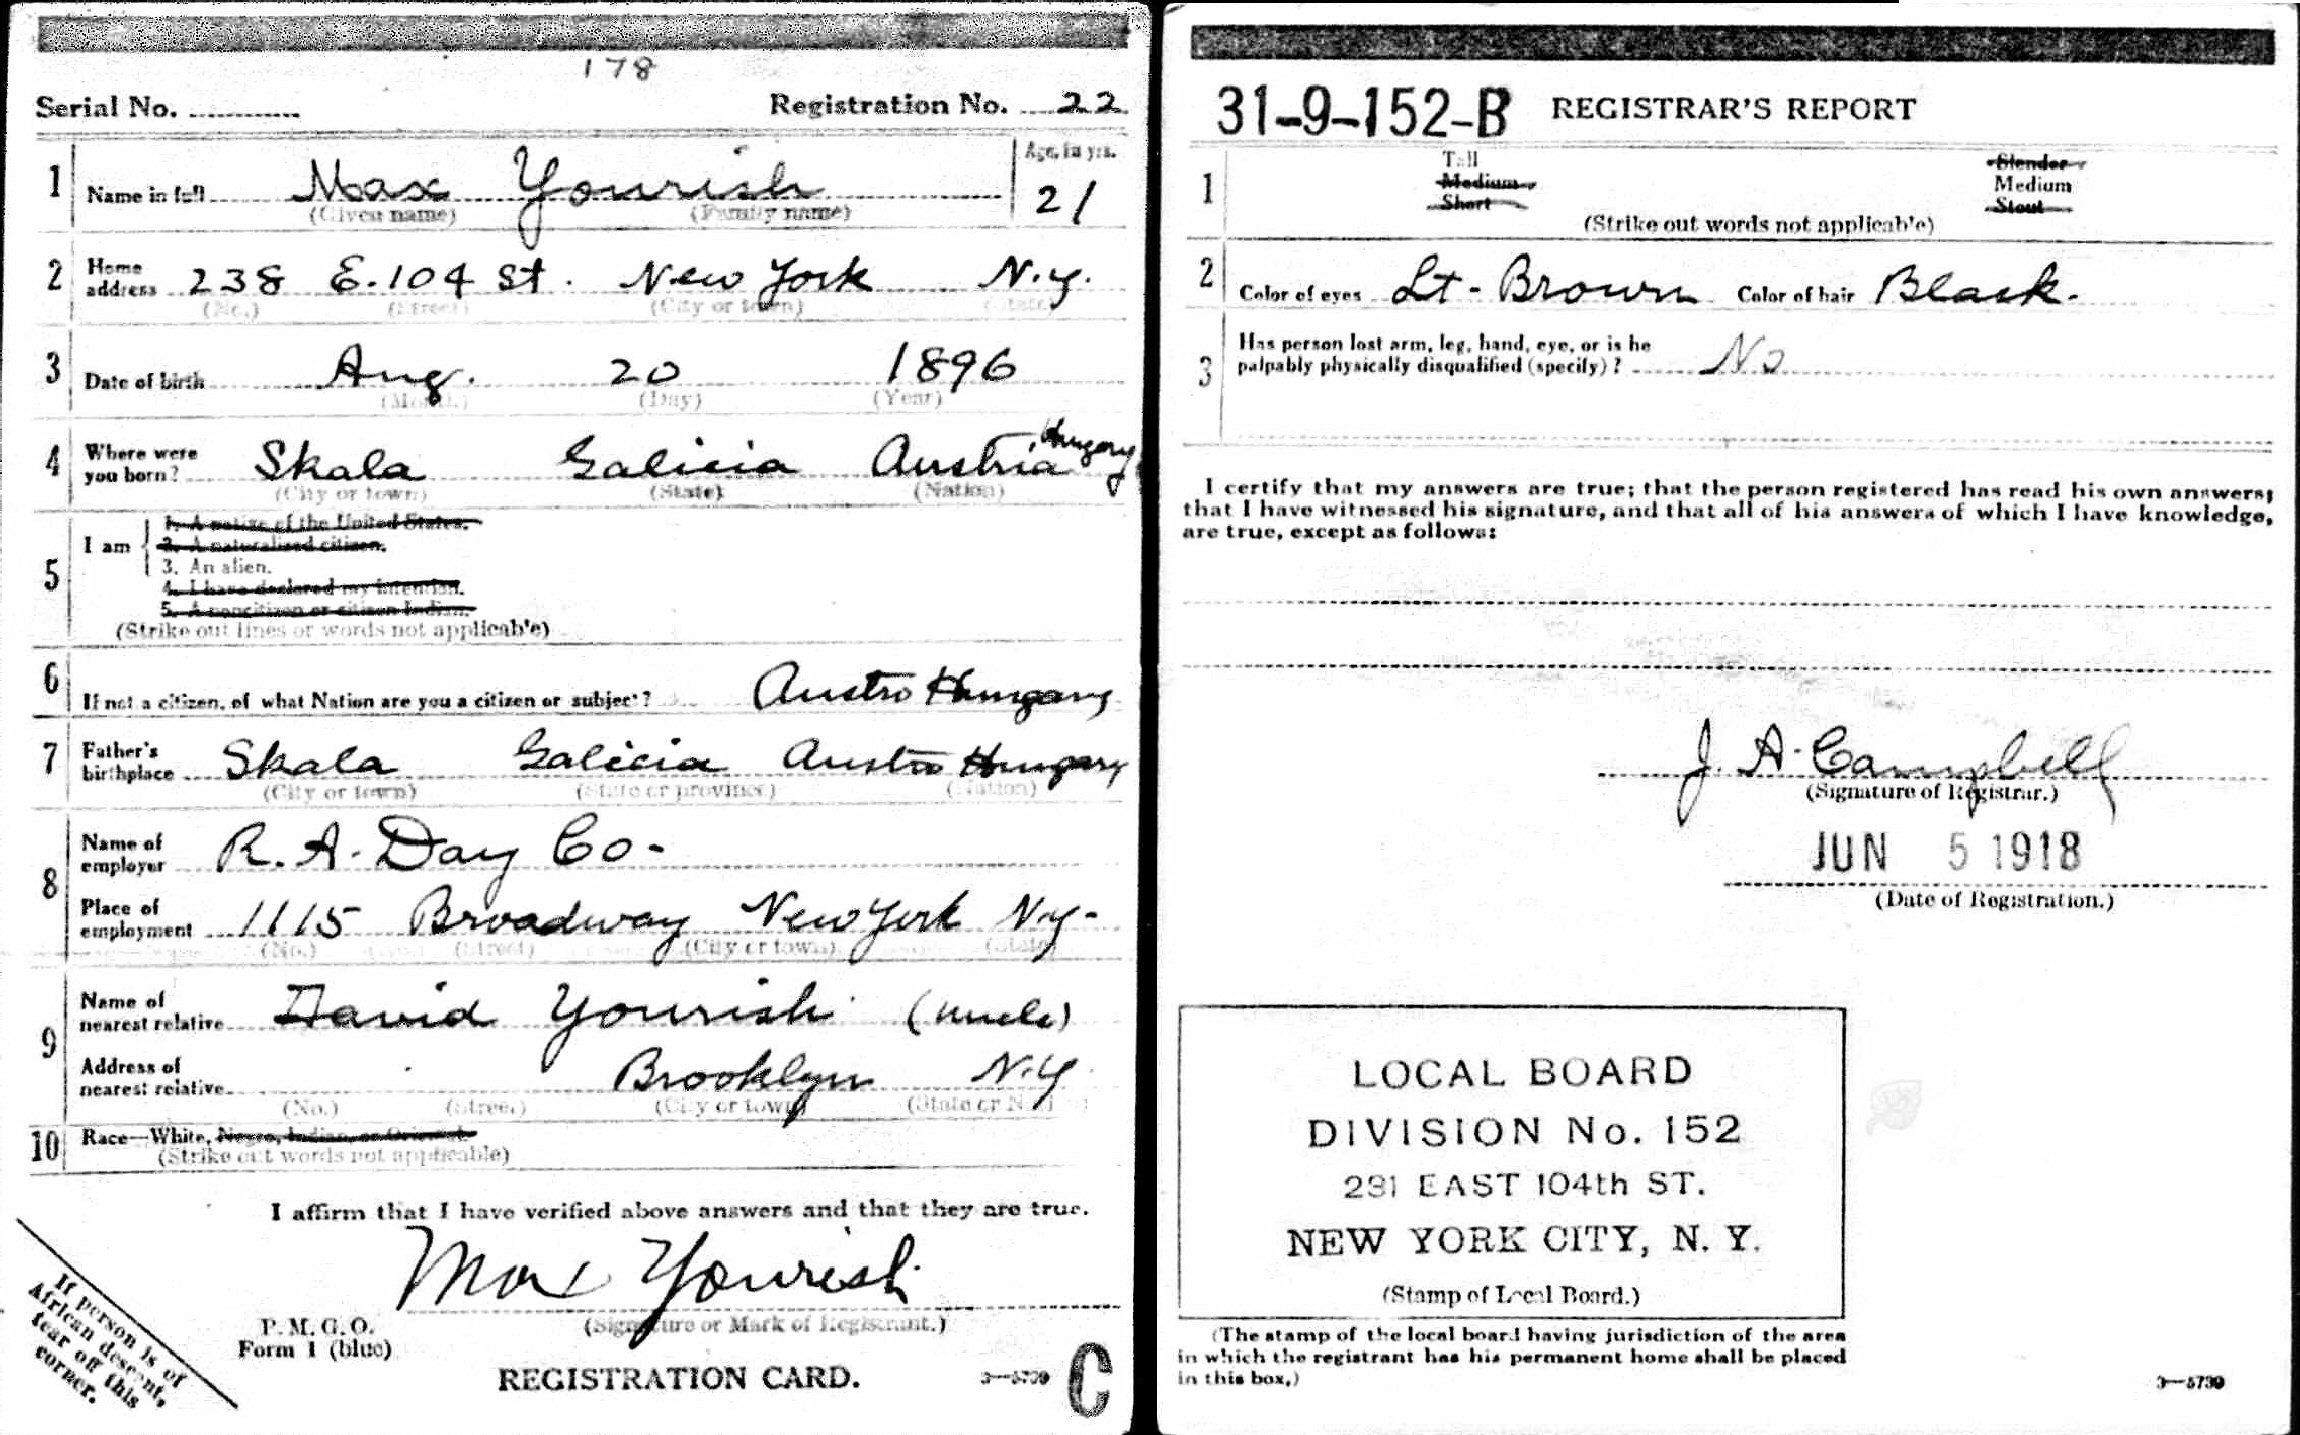 178
Serial No. ............ Registration No. 22
1 Name in full Max Yourish Age, in yrs. 21
(Given name) (Family name)
2 Home address 238 E. 104 St. New York N.Y.
(No.) (Street) (City or town) (State)
3 Date of birth Aug. 20 1896
(Month) (Day) (Year)
4 Where were you born? Skala Galicia Austria Hungary
(City or town) (State) (Nation)
5 I am
1. A native of the United States.
2. A naturalized citizen.
3. An alien.
4. I have declared my intention.
5. A noncitizen or citizen Indian.
(Strike out lines or words not applicable)
6 If not a citizen, of what Nation are you a citizen or subject? Austro Hungary
7 Father's birthplace Skala Galicia Austro Hungary
(City or town) (State or province) (Nation)
8 Name of employer R. A. Day Co-
Place of employment 1115 Broadway New York N.y-
(No.) (Street) (City or town) (State)
9 Name of nearest relative David Yourish (uncle)
Address of nearest relative Brooklyn N.Y
(No.) (Street) (City or town) (State or Nation)
10 Race—White, Negro, Indian, or Oriental
(Strike out words not applicable)
I affirm that I have verified above answers and that they are true.
Max Yourish
(Signature or Mark of Registrant.)
P. M. G. O.
Form 1 (blue)
REGISTRATION CARD.
3—5739 C
If person is of
African descent,
tear off this
corner.
31-9-152-B REGISTRAR'S REPORT
1 Tall Slender
Medium Medium
Short Stout
(Strike out words not applicable)
2 Color of eyes Lt - Brown Color of hair Black.
3 Has person lost arm, leg, hand, eye, or is he
palpably physically disqualified (specify)? No
I certify that my answers are true; that the person registered has read his own answers;
that I have witnessed his signature, and that all of his answers of which I have knowledge,
are true, except as follows:
J. A. Campbell
(Signature of Registrar.)
JUN 5 1918
(Date of Registration.)
LOCAL BOARD
DIVISION No. 152
231 EAST 104th ST.
NEW YORK CITY, N. Y.
(Stamp of Local Board.)
(The stamp of the local board having jurisdiction of the area
in which the registrant has his permanent home shall be placed
in this box.)
3—5739